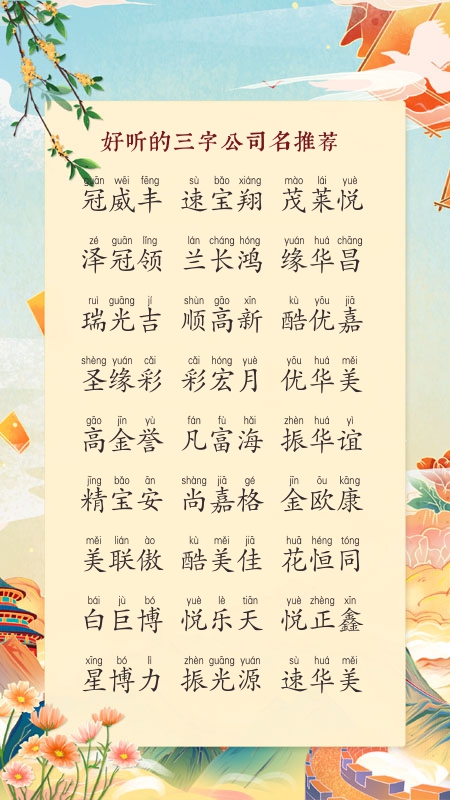 好听的三字公司名推荐
guān wēi fēng sù bǎo xiáng mào lái yuè
冠威丰 速宝翔 茂莱悦
zé guān lǐng lán cháng hóng yuán huá chāng
泽冠领 兰长鸿 缘华昌
ruì guāng jí shùn gāo xīn kù yōu jiā
瑞光吉 顺高新 酷优嘉
shèng yuán cǎi cǎi hóng yuè yōu huá měi
圣缘彩 彩宏月 优华美
gāo jīn yù fán fù hǎi zhèn huá yì
高金誉 凡富海 振华谊
jīng bǎo ān shàng jiā gé jīn ōu kāng
精宝安 尚嘉格 金欧康
měi lián ào kù měi jiā huā héng tóng
美联傲 酷美佳 花恒同
bái jù bó yuè lè tiān yuè zhèng xīn
白巨博 悦乐天 悦正鑫
xīng bó lì zhèn guāng yuán sù huá měi
星博力 振光源 速华美